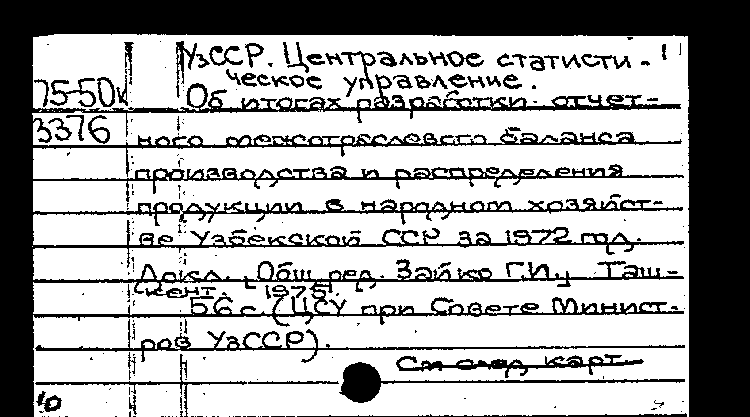 УзССР. Центральное статисти-
ческое управление.
75-50к Об итогах разработки отчет-
3376 ного межотраслевого баланса
производства и распределения
продукции в народном хозяйст-
ве Узбекской ССР за 1972 год.
Докл. Общ. ред. Зайко Г.И., Таш-
кент. [1975].
56 с. (ЦСУ при Совете Минист-
ров УзССР).
См след карт